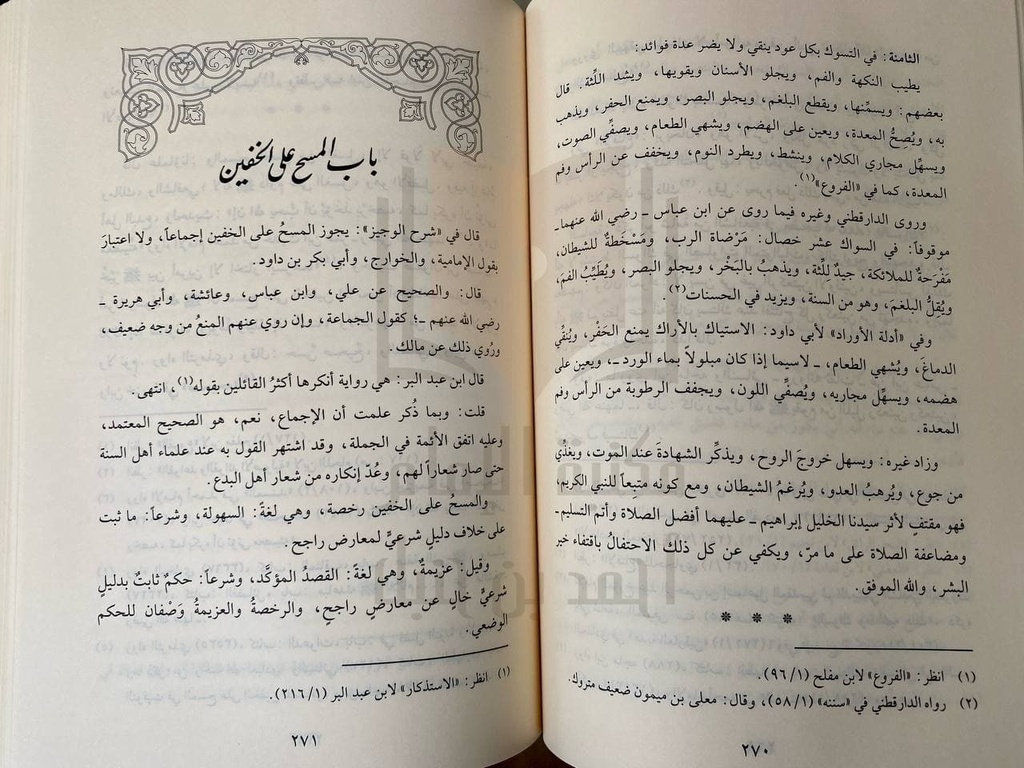 الثامنة: في التسوك بكل عود ينقي ولا يضر عدة فوائد:
يطيب النكهة والفم، ويجلو الأسنان ويقويها، ويشد اللثة. قال
بعضهم: ويسمِّنها، ويقطع البلغم، ويجلو البصر، ويمنع الحفر، ويذهب
به، ويُصِحُّ المعدة، ويعين على الهضم، ويشهي الطعام، ويصفِّي الصوت،
ويسهِّل مجاري الكلام، وينشط، ويطرد النوم، ويخفف عن الرأس وفم
المعدة، كما في «الفروع»(١).
وروى الدارقطني وغيره فيما روى عن ابن عباس ـ رضي الله عنهما ـ
موقوفاً: في السواك عشر خصال: مَرْضاة الرب، ومَسْخَطةٌ للشيطان،
مَفْرَحةٌ للملائكة، جيدٌ للِّثة، ويذهبُ بالبَخْر، ويجلو البصر، ويُطَيِّبُ الفمَ،
ويُقِلُّ البلغمَ، وهو من السنة، ويزيد في الحسنات(٢).
وفي «أدلة الأوراد» لأبي داود: الاستياك بالأراك يمنع الحَفْر، ويُنقِّي
الدماغَ، ويُشهي الطعام، ـ لاسيما إذا كان مبلولاً بماء الورد ـ، ويعين على
هضمه، ويسهِّل مجاريه، ويُصفِّي اللون، ويجفف الرطوبة من الرأس وفم
المعدة.
وزاد غيره: ويسهل خروجَ الروح، ويذكِّر الشهادةَ عند الموت، ويغذِّي
من جوع، ويُرهبُ العدو، ويُرغمُ الشيطان، ومع كونه متبِعاً للنبي الكريم،
فهو مقتفٍ لأثر سيدنا الخليل إبراهيم ـ عليهما أفضل الصلاة وأتم التسليم ـ
ومضاعفة الصلاة على ما مرّ، ويكفي عن كل ذلك الاحتفالُ باقتفاء خير
البشر، والله الموفق.
* * *
(١) انظر: «الفروع» لابن مفلح (١/ ٩٦).
(٢) رواه الدارقطني في «سننه» (١/ ٥٨)، وقال: معلى بن ميمون ضعيف متروك.
٢٧٠
باب المسح على الخفين
قال في «شرح الوجيز»: يجوز المسحُ على الخفين إجماعاً، ولا اعتبارَ
بقول الإمامية، والخوارج، وأبي بكر بن داود.
قال: والصحيح عن علي، وابن عباس، وعائشة، وأبي هريرة ـ
رضي الله عنهم ـ؛ كقول الجماعة، وإن روي عنهم المنعُ من وجه ضعيف،
ورُوي ذلك عن مالك.
قال ابن عبد البر: هي رواية أنكرها أكثرُ القائلين بقوله(١)، انتهى.
قلت: وبما ذُكر علمت أن الإجماع، نعم، هو الصحيح المعتمد،
وعليه اتفق الأئمة في الجملة، وقد اشتهر القول به عند علماء أهل السنة
حتى صار شعاراً لهم، وعُدّ إنكاره من شعار أهل البدع.
والمسحُ على الخفين رخصة، وهي لغةً: السهولة، وشرعاً: ما ثبت
على خلاف دليلٍ شرعيٍّ لمعارض راجح.
وقيل: عزيمةٌ، وهي لغةً: القصدُ المؤكِّد، وشرعاً: حكمٌ ثابتٌ بدليلٍ
شرعيٍّ خالٍ عن معارضٍ راجحٍ، والرخصةُ والعزيمةُ وَصْفان للحكم
الوضعي.
(١) انظر: «الاستذكار» لابن عبد البر (١/ ٢١٦).
٢٧١